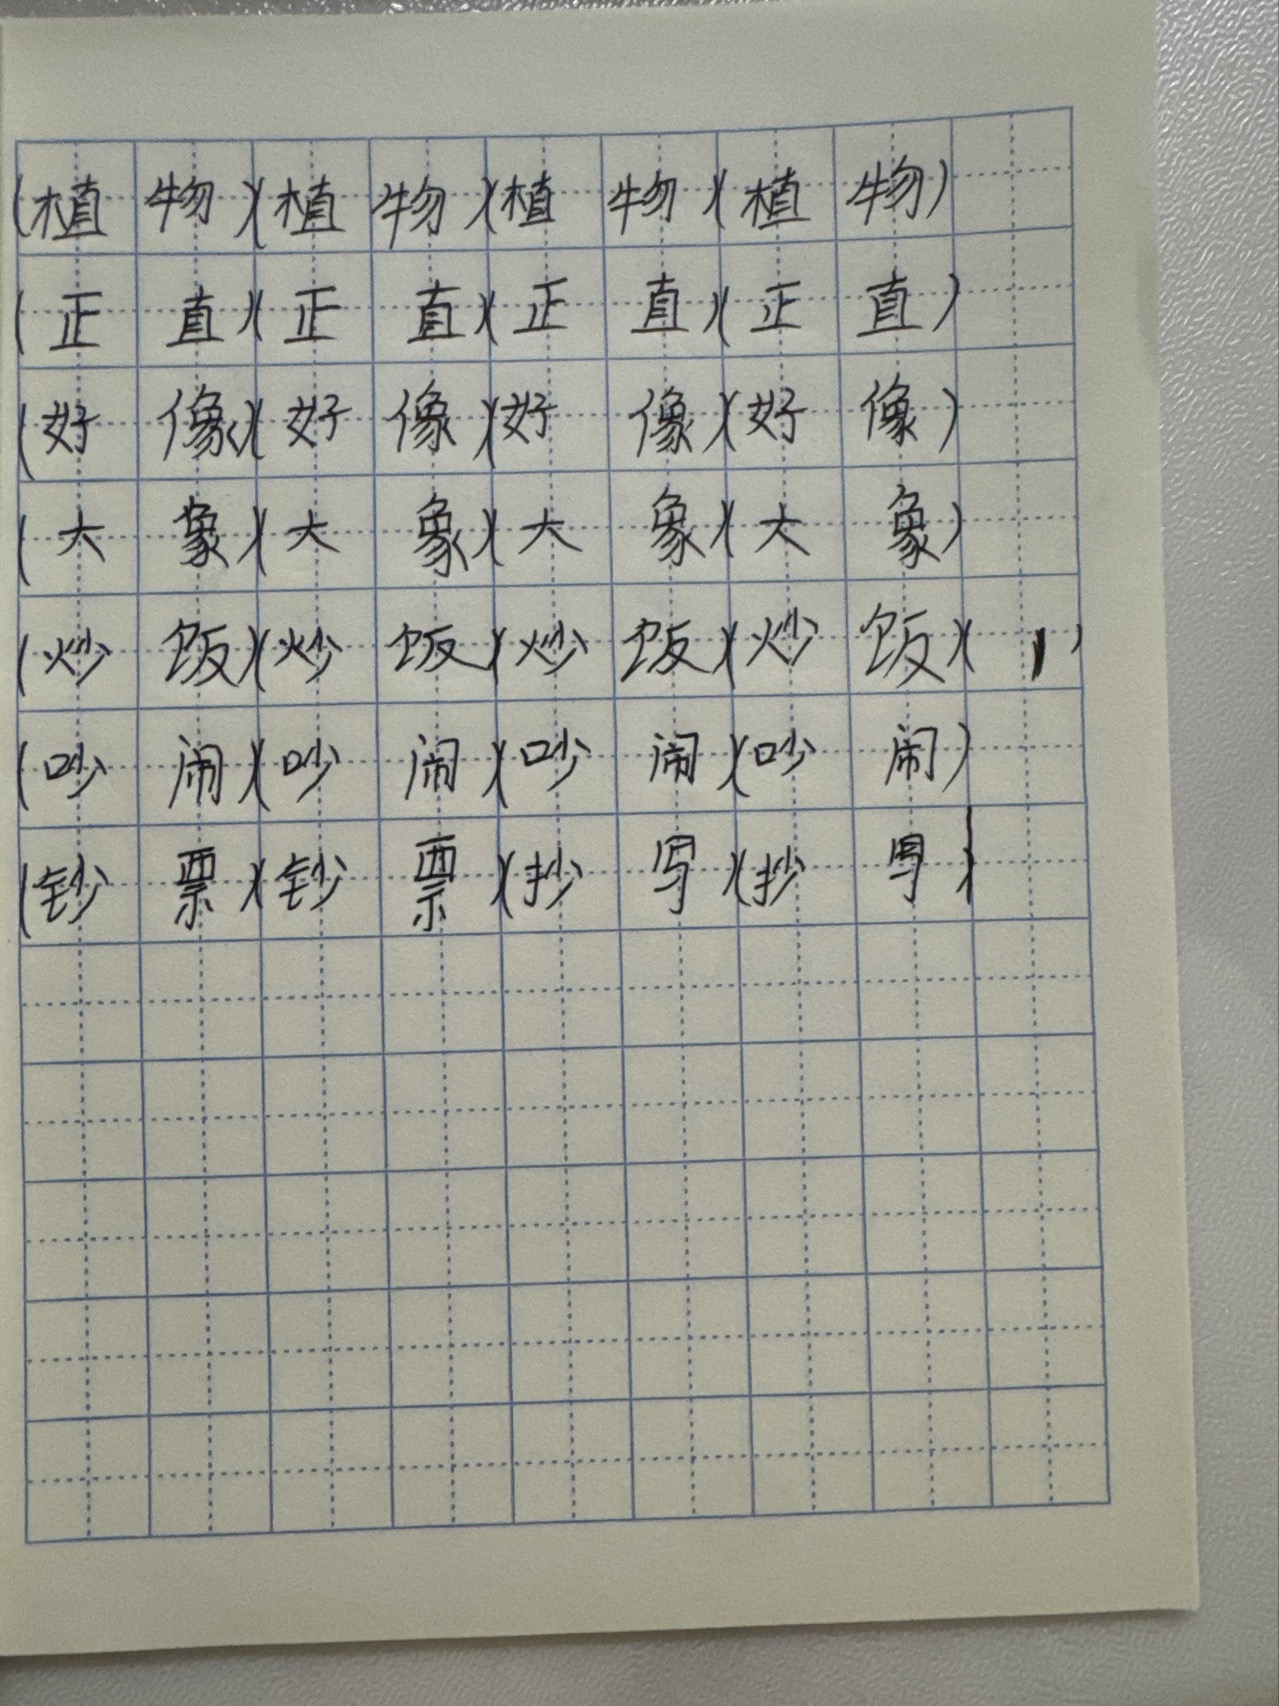 (植物)(植物)(植物)(植物)
(正直)(正直)(正直)(正直)
(好像)(好像)(好像)(好像)
(大象)(大象)(大象)(大象)
(炒饭)(炒饭)(炒饭)(炒饭)(
(吵闹)(吵闹)(吵闹)(吵闹)
(钞票)(钞票)(抄写)(抄写)